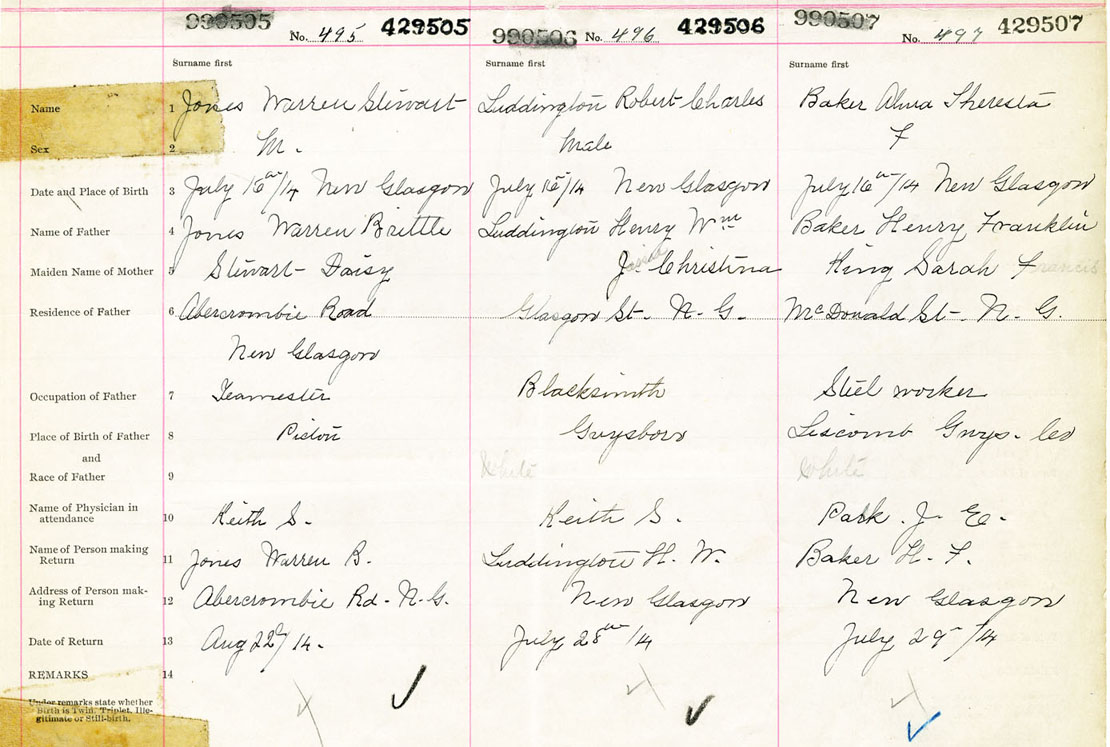 990505 No. 495 429505 990506 No. 496 429506 990507 No. 497 429507
Surname first Surname first Surname first
Name 1 Jones Warren Stewart Luddington Robert Charles Baker Alma Theresta
Sex 2 M. Male F
Date and Place of Birth 3 July 16th/14 New Glasgow July 15/14 New Glasgow July 16th/14 New Glasgow
Name of Father 4 Jones Warren Brittle Luddington Henry Wm Baker Henry Franklin
Maiden Name of Mother 5 Stewart Daisy Christina King Sarah Francis
Residence of Father 6 Abercrombie Road Glasgow St. N. G. McDonald St. N. G.
New Glasgow
Occupation of Father 7 Teamster Blacksmith Steel worker
Place of Birth of Father 8 Pictou Guysboro Liscomb Guys. Co
and
Race of Father 9 White White
Name of Physician in
attendance 10 Keith S. Keith S. Park. J. E.
Name of Person making
Return 11 Jones Warren B. Luddington H. W. Baker H. F.
Address of Person mak-
ing Return 12 Abercrombie Rd. N. G. New Glasgow New Glasgow
Date of Return 13 Aug 22/14. July 28th/14 July 29/14
REMARKS 14
Under remarks state whether
Birth is Twin, Triplet, Ille-
gitimate or Still-birth.